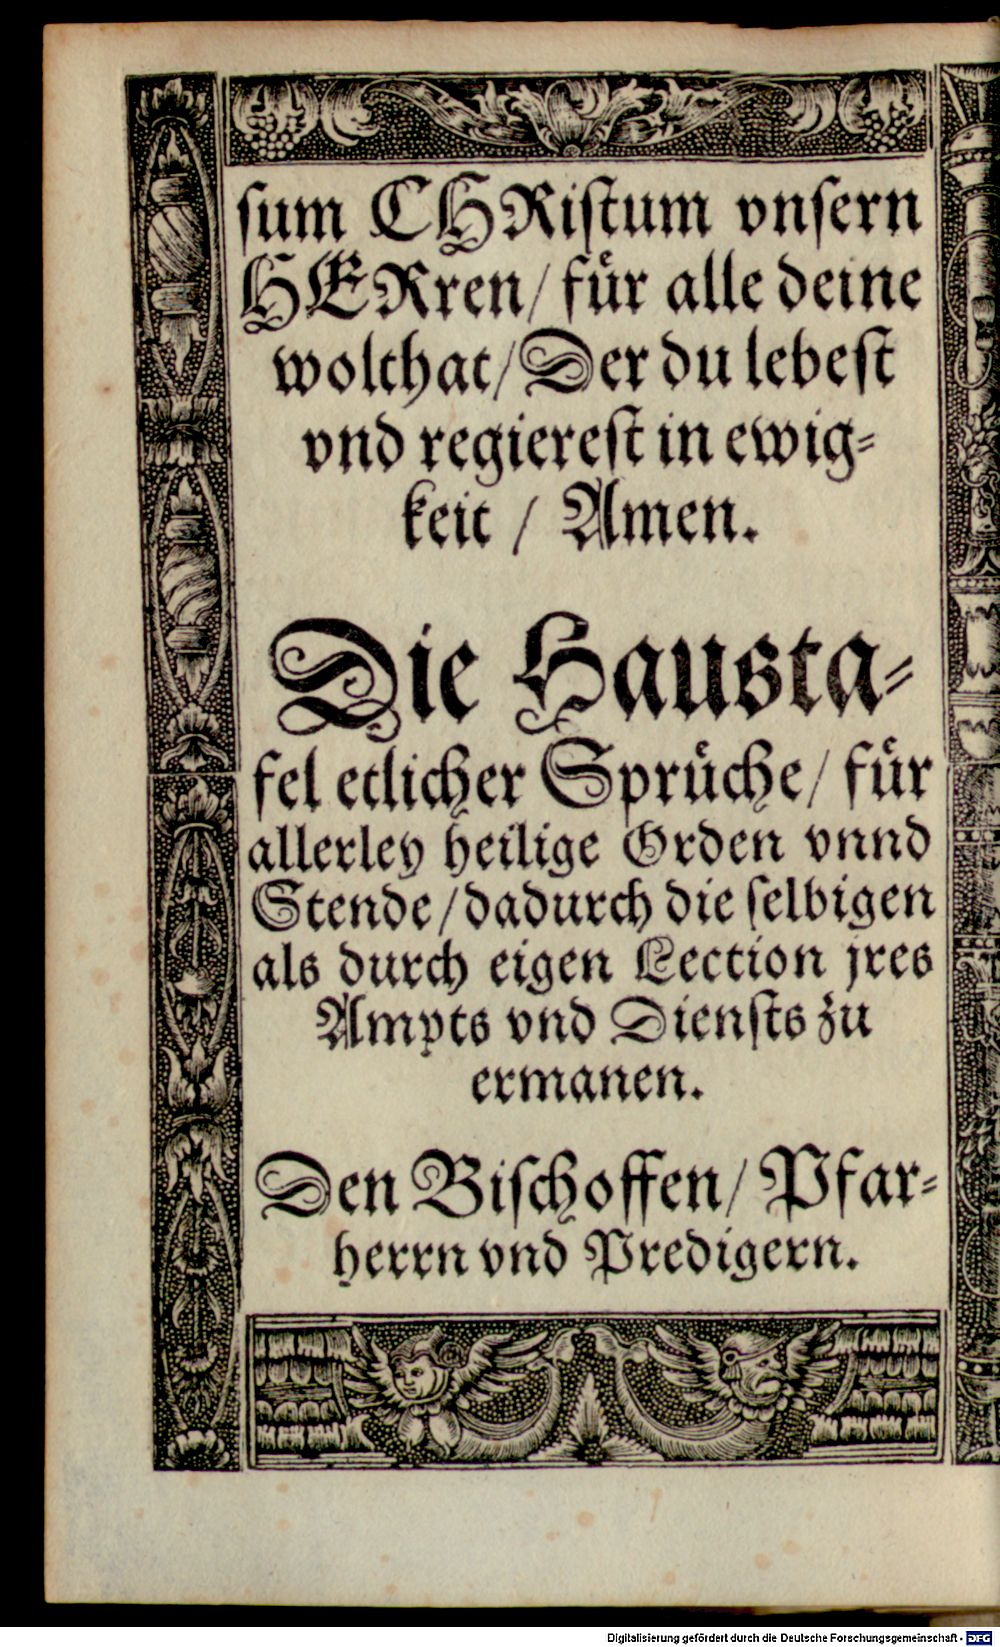 ſum CHRiſtum vnſern
HERren/ für alle deine
wolthat/ Der du lebeſt
vnd regiereſt in ewig⸗
keit / Amen.
Die Hausta⸗
fel etlicher Sprüche/ für
allerley heilige Orden vnnd
Stende/ dadurch die ſelbigen
als durch eigen Lection jres
Ampts vnd Dienſts zu
ermanen.
Den Biſchoffen/ Pfar⸗
herrn vnd Predigern.
Digitalisierung gefördert durch die Deutsche Forschungsgemeinschaft - DFG